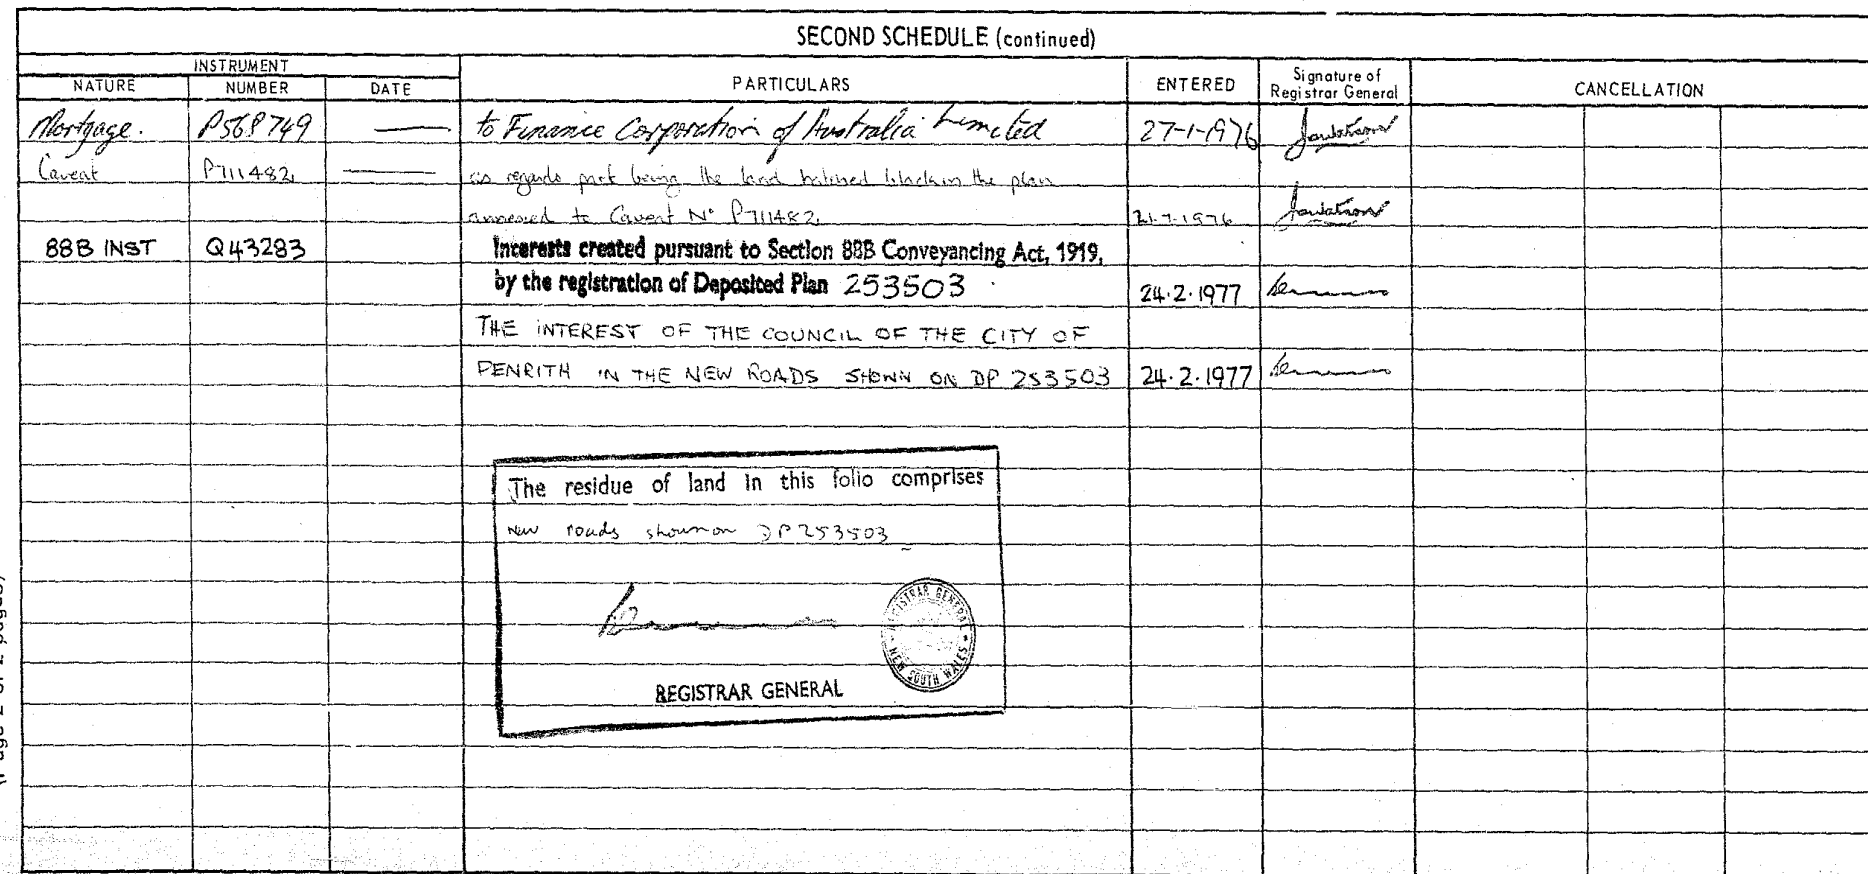 SECOND SCHEDULE (continued)
INSTRUMENT
NATURE NUMBER DATE PARTICULARS ENTERED Signature of Registrar General CANCELLATION
Mortgage. P568749 to Finance Corporation of Australia Limited 27-1-1976
Caveat P711482 as regards part being the land hatched black in the plan
annexed to Caveat No P711482 21-7-1976
88B INST Q43283 Interests created pursuant to Section 88B Conveyancing Act, 1919,
by the registration of Deposited Plan 253503 24.2.1977
THE INTEREST OF THE COUNCIL OF THE CITY OF
PENRITH IN THE NEW ROADS SHOWN ON DP 253503 24.2.1977
The residue of land in this folio comprises
New roads shown on DP 253503
REGISTRAR GENERAL
NEW SOUTH WALES
REGISTRAR GENERAL